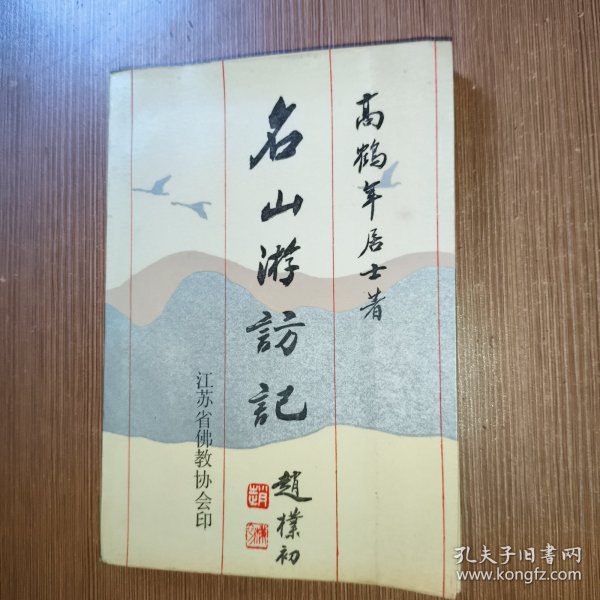 高鶴年居士著
名山游訪記
趙樸初
江苏省佛教协会印
孔夫子旧书网
www.kongfz.com